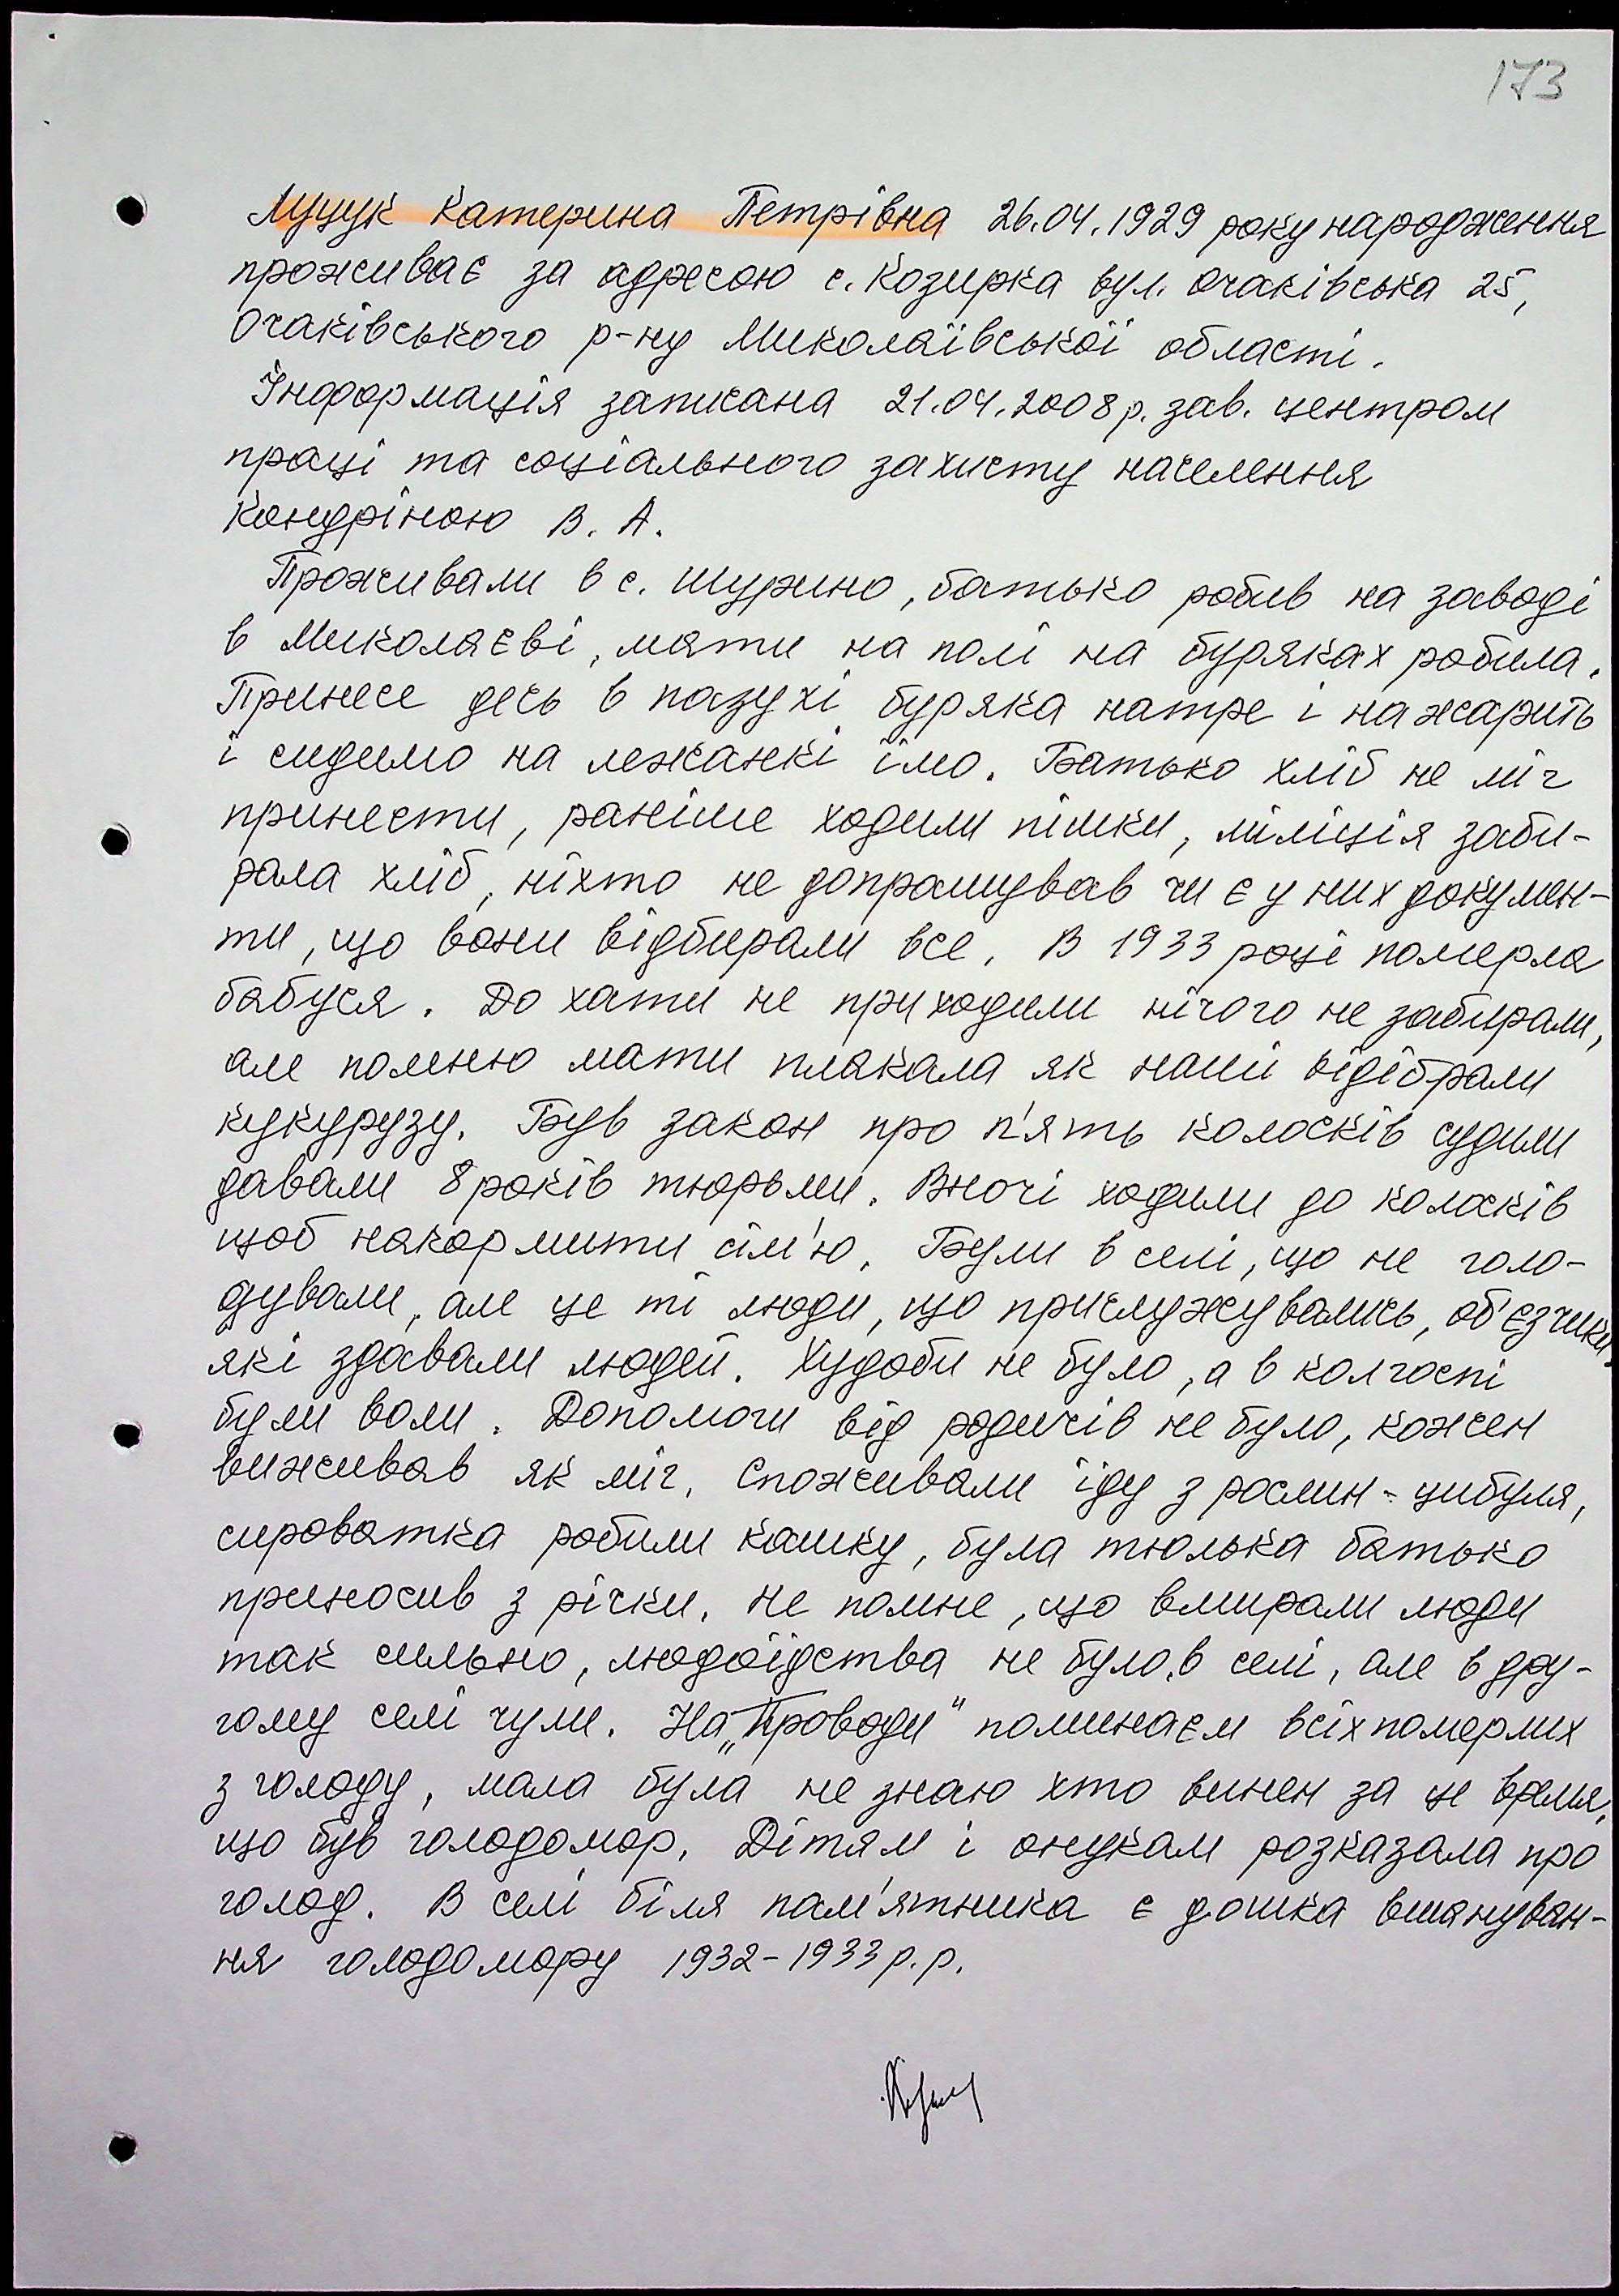 173
Луцук Катерина Петрівна 26.04.1929 року народження
проживає за адресою с. Козирка вул. Очаківська 25,
Очаківського р-ну Миколаївської області.
Інформація записана 21.04.2008 р. зав. центром
праці та соціального захисту населення
Кондріною В. А.
Проживали в с. Шурино, батько робив на заводі
в Миколаєві, мати на полі на буряках робила.
Принесе десь в пазухі буряка натре і нажарить
і сидимо на лежанкі їмо. Батько хліб не міг
принести, раніше ходили пішки, міліція заби-
рала хліб, ніхто не допрашував чи є у них докумен-
ти, що вони відбирали все. В 1933 році померла
бабуся. До хати не приходили нічого не забирали,
але помню мати плакала як нашы відібрали
кукурузу. Був закон про п'ять колосків судили
давали 8 років тюрьми. Вночі ходили до колосків
щоб накормити сім'ю. Були в селі, що не голо-
дували, але це ті люди, що прислужувались, об'єзчики,
які здавали людей. Худоби не було, а в колгоспі
були воли. Допомоги від родичів не було, кожен
виживав як міг. Споживали їду з рослин - цибуля,
сироватка робили кашку, була тюлька батько
приносив з річки. Не помне, що вмирали люди
так сильно, людоїдства не було в селі, але в дру-
гому селі чули. На „Проводи" поминаєм всіх померлих
з голоду, мала була не знаю хто винен за це время,
що був голодомор. Дітям і онукам розказала про
голод. В селі біля пам'ятника є дошка вшануван-
ня голодомору 1932-1933 р.р.